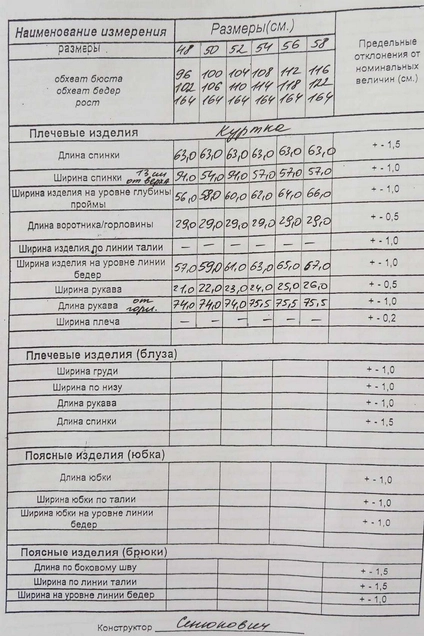 Наименование измерения Размеры(см.) Предельные отклонения от номинальных величин (см.)
размеры 48 50 52 54 56 58
обхват бюста 96 100 104 108 112 116
обхват бедер 102 106 110 114 118 122
рост 164 164 164 164 164 164
Плечевые изделия Куртка
Длина спинки 63,0 63,0 63,0 63,0 63,0 63,0 + - 1,5
Ширина спинки 13 см от верха 51,0 54,0 57,0 57,0 57,0 + - 1,0
Ширина изделия на уровне глубины проймы 56,0 58,0 60,0 62,0 64,0 66,0 + - 1,0
Длина воротника/горловины 29,0 29,0 29,0 29,0 29,0 29,0 + - 0,5
Ширина изделия по линии талии – – – – – – + - 1,0
Ширина изделия на уровне линии бедер 57,0 59,0 61,0 63,0 65,0 67,0 + - 1,0
Ширина рукава 21,0 22,0 23,0 24,0 25,0 26,0 + - 0,5
Длина рукава от горл. 74,0 74,0 74,0 75,5 75,5 75,5 + - 1,0
Ширина плеча – – – – – – + - 0,2
Плечевые изделия (блуза)
Ширина груди + - 1,0
Ширина по низу + - 1,0
Длина рукава + - 1,0
Длина спинки + - 1,5
Поясные изделия (юбка)
Длина юбки + - 1,0
Ширина юбки по талии + - 1,0
Ширина юбки на уровне линии бедер + - 1,0
Поясные изделия (брюки)
Длина по боковому шву + - 1,5
Ширина по линии талии + - 1,5
Ширина на уровне линии бедер + - 1,0
Конструктор Сенюкович